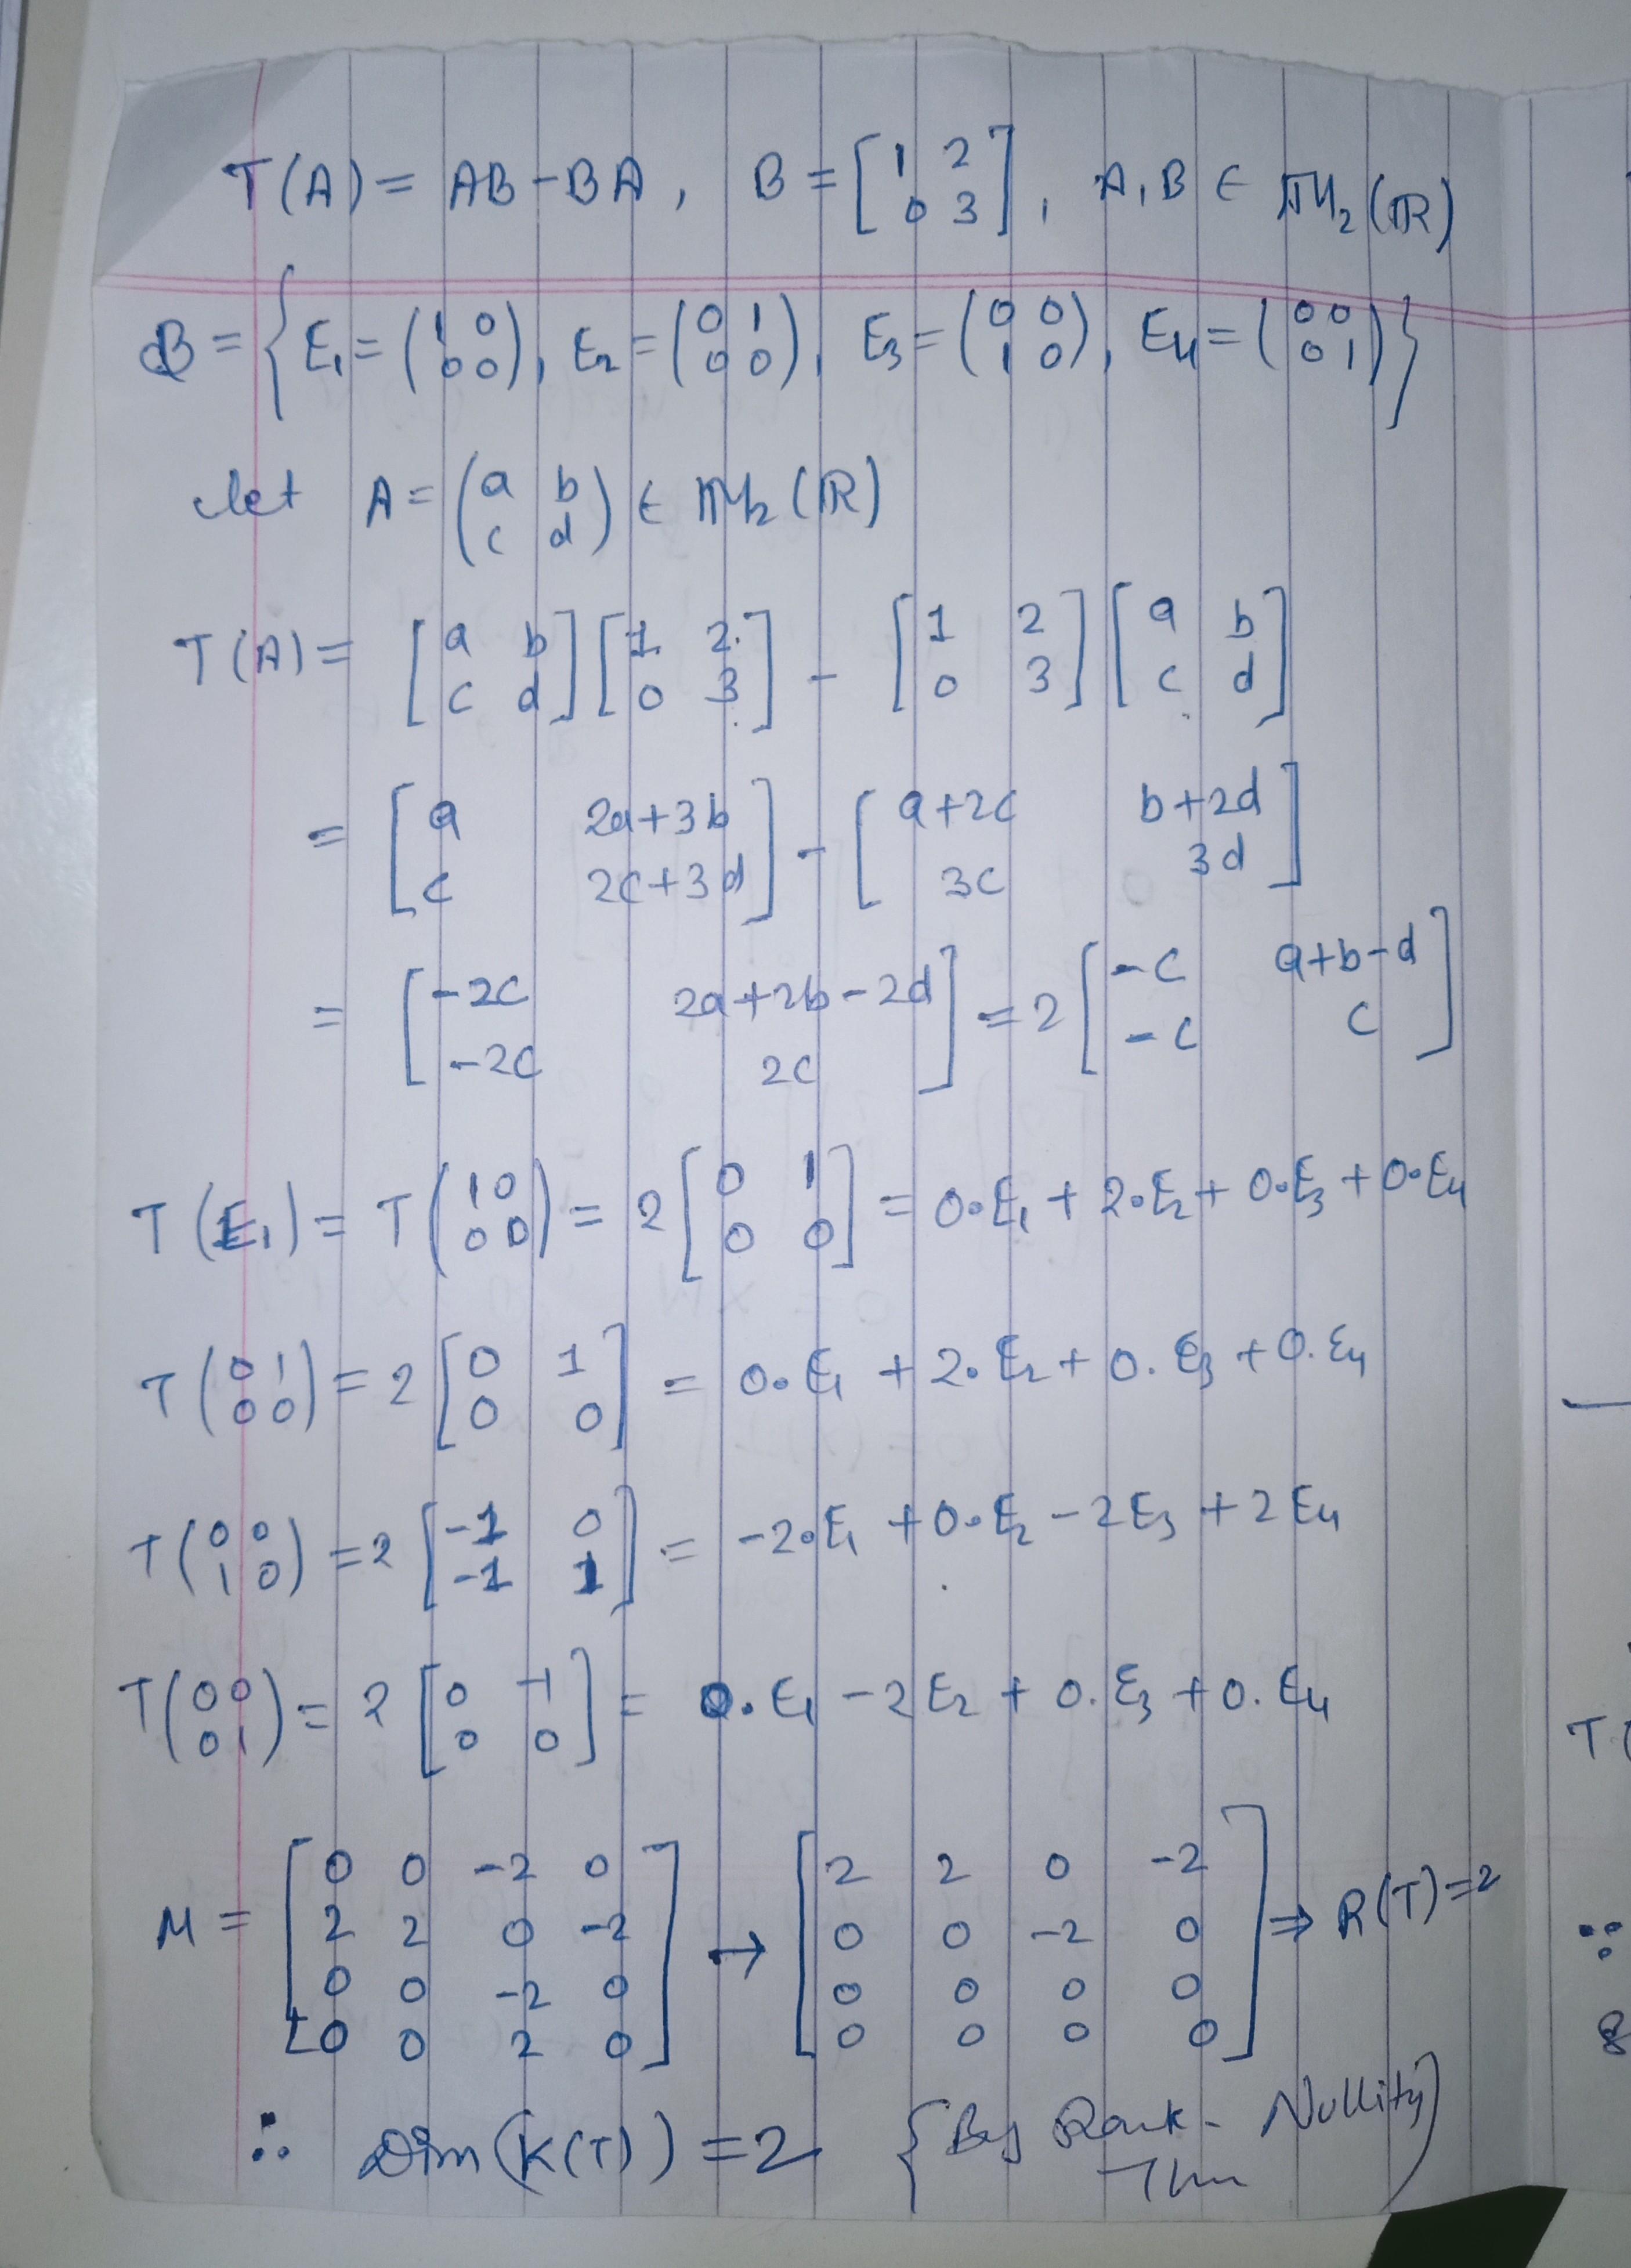 T(A) = AB - BA, B = [1 2; 0 3], A, B ∈ M₂(ℝ)
B = {E₁ = (1 0; 0 0), E₂ = (0 1; 0 0), E₃ = (0 0; 1 0), E₄ = (0 0; 0 1)}
let A = (a b; c d) ∈ M₂(ℝ)
T(A) = [a b; c d] [1 2; 0 3] - [1 2; 0 3] [a b; c d]
= [a 2a+3b; c 2c+3d] - [a+2c b+2d; 3c 3d]
= [-2c 2a+2b-2d; -2c 2c] = 2 [-c a+b-d; -c c]
T(E₁) = T(1 0; 0 0) = 2 [0 1; 0 0] = 0·E₁ + 2·E₂ + 0·E₃ + 0·E₄
T(0 1; 0 0) = 2 [0 1; 0 0] = 0·E₁ + 2·E₂ + 0·E₃ + 0·E₄
T(0 0; 1 0) = 2 [-1 0; -1 1] = -2·E₁ + 0·E₂ - 2E₃ + 2E₄
T(0 0; 0 1) = 2 [0 -1; 0 0] = 0·E₁ - 2E₂ + 0·E₃ + 0·E₄
T(
M = [0 0 -2 0; 2 2 0 -2; 0 0 -2 0; 0 0 2 0] → [2 2 0 -2; 0 0 -2 0; 0 0 0 0; 0 0 0 0] ⇒ R(T) = 2
∴
∴ Dim(K(T)) = 2 {By Rank-Nullity Thm}